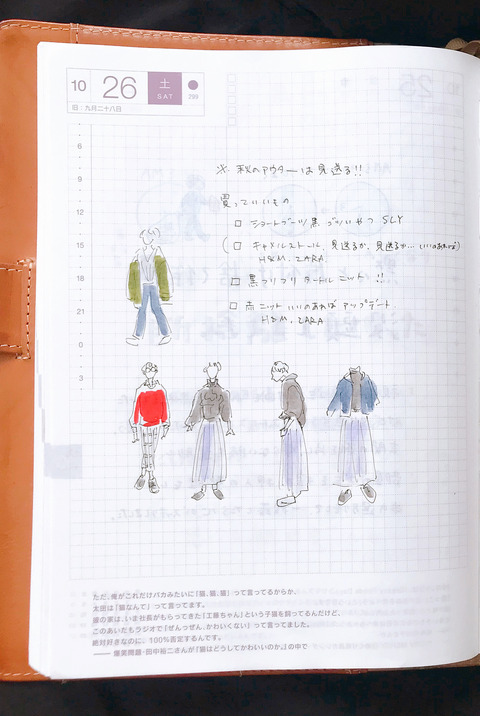 10 26 土 SAT 299
旧：九月二十八日
6
9
12
15
18
21
0
3
※ 秋のアウターは見送る!!
買っていいもの
□ ショートブーツ 黒 ゴツいやつ SLY
(□ キャメルストール、見送るか、見送るか… いいのあれば)
H&M、ZARA
□ 黒フリフリ タートル ニット !!
□ 赤ニット いいのあれば アップデート
H&M、ZARA
ただ、俺がこれだけバカみたいに「猫、猫、猫」って言ってるからか、
太田は「猫なんて」って言ってます。
嫁の家は、いま社長がもらってきた「工藤ちゃん」という子猫を飼ってるんだけど、
このあいだもラジオで「ぜんっぜん、かわいくない」って言ってました。
絶対好きなのに、100%否定するんです。
—— 爆笑問題・田中裕二さんが『猫はどうしてかわいいのか。』の中で